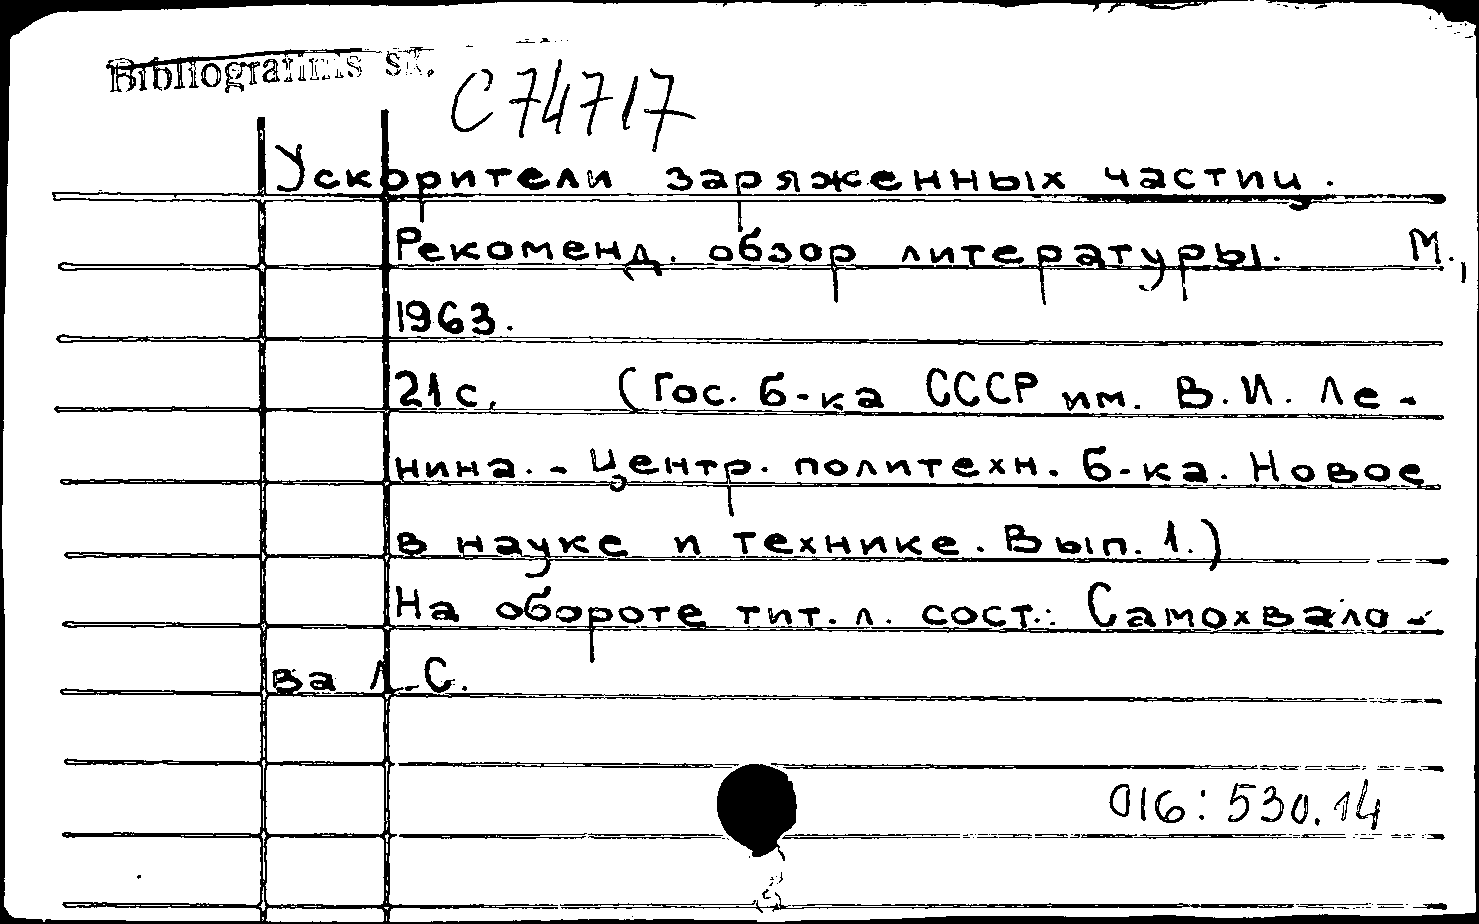 Bibliografinis sk.
C74717
Ускорители заряженных частиц.
Рекоменд. обзор литературы. М.,
1963.
21 с. (Гос. б-ка СССР им. В.И. Ле-
нина. - Центр. политехн. б-ка. Новое
в науке и технике. Вып. 1.)
На обороте тит. л. сост.: Самохвало-
ва Л.С.
016:530.14